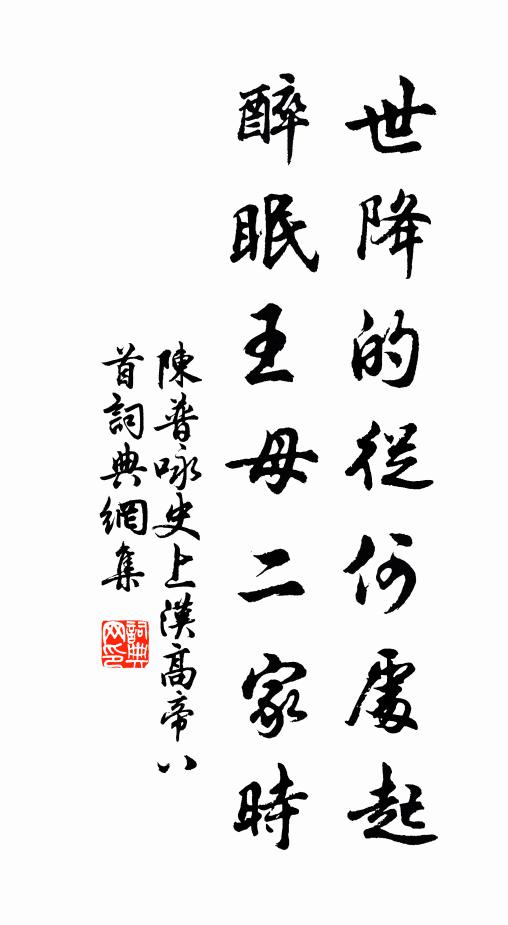 世降的從何處起
醉眠王母二家時
陳普咏史上漢高帝八
首詞典網集
詞典网印